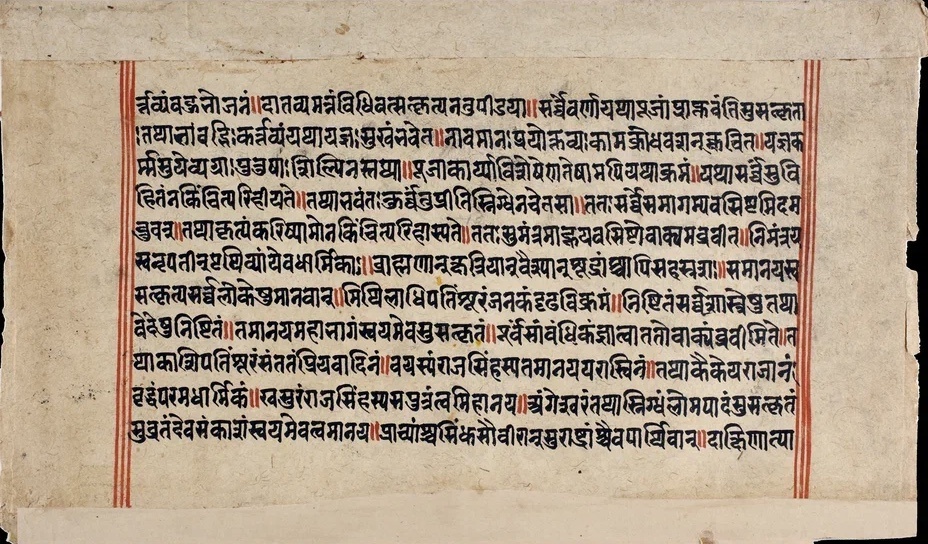 र्त्तव्यं वहुभोजनं॥दातव्यमन्नंविधिवत्सत्कृत्यनतुपीडया॥सर्व्वेवर्णायथापूजांप्राप्नुवंतिसुसत्कृता
:तथाभवद्भिःकर्त्तव्यंयथायज्ञःसुखंभवेत॥नावमानःप्रयोक्तव्यःकामक्रोधवशान्क्वचित॥यज्ञक
र्म्मसुयेव्यग्राःपुरुषाःशिल्पिनस्तथा॥पूजाकार्य्याविशेषेणतेषामपियथाक्रमं॥यथासर्व्वंसुवि
हितंनकिंचित्परिहीयते॥तथाभवंतःकुर्व्वंतुप्रीतिस्निग्धेनचेतसा॥ततःसर्व्वेसमागम्यवसिष्टमिदम
ब्रुवन्॥तथाकृत्यंकरिष्यामोनकिंचित्परिहास्यते॥ततःसुमंत्रमाहूयवसिष्टोवाक्यमब्रवीत॥निमंत्रय
स्वनृपतीन्पृथिव्यांयेचधार्मिकाः॥ब्राह्मणान्क्षत्रियान्वैश्यान्शूद्रांश्चापिसहस्रशः॥समानयस्व
सत्कृत्यसर्व्वलोकेषुमानवान्॥मिथिलाधिपतिंशूरंजनकंदृढविक्रमं॥निष्टितंसर्व्वशास्त्रेषुतथा
वेदेषुनिष्टितं॥तमानयमहाभागंस्वयमेवसुसत्कृतं॥पूर्वसंबंधिकंज्ञात्वाततोवाक्यंब्रवीमिते॥त
थाकाशिपतिंशूरंसततंप्रियवादिनं॥वयस्यंराजसिंहस्यतमानययशस्विनं॥तथाकैकेयराजानं
वृद्धंपरमधार्मिकं॥श्वसुरंराजसिंहस्यसपुत्रंत्वमिहानय॥अंगेश्वरंतथास्निग्धंलोमपादंसुसत्कृतं
सुव्रतंदेवसंकाशंस्वयमेवत्वमानय॥प्राच्यांश्चसिंधुसौवीरान्सुराष्ट्रांश्चैवपार्थिवान्॥दाक्षिणात्या